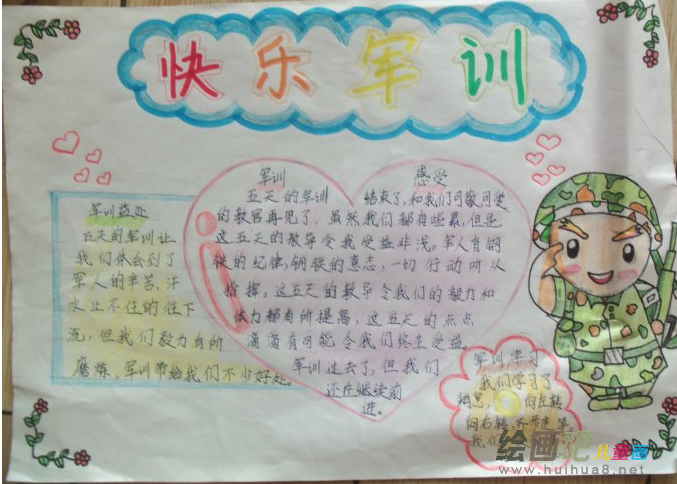 快乐军训
军训益处
五天的军训让
我们体会到了
军人的辛苦,汗
水止不住的往下
流,但我们毅力有所
磨炼、军训带给我们不少好处。
军训 感受
五天的军训 结束了,和我们可敬可爱
的教官再见了,虽然我们都有些累,但是
这五天的教导令我受益非浅。军人有钢
铁的纪律,钢铁的意志,一切行动听从
指挥。这五天的教导令我们的毅力和
体力都有所提高,这五天的点点
滴滴有可能令我们终生受益。
军训过去了,但我们
还应继续前
进。
军训学习
我们学习了
稍息, 向左转
向右转,齐步走等
我
绘画吧儿童画
www.huihua8.net